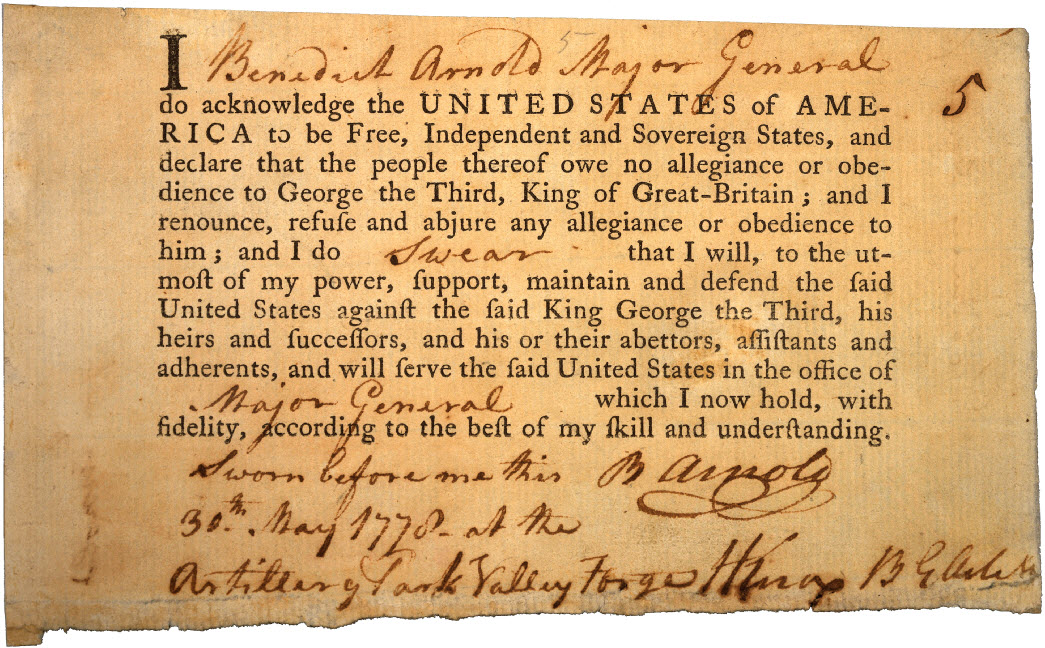 5
I Benedict Arnold Major General
do acknowledge the UNITED STATES of AME-
RICA to be Free, Independent and Sovereign States, and
declare that the people thereof owe no allegiance or obe-
dience to George the Third, King of Great-Britain ; and I
renounce, refuſe and abjure any allegiance or obedience to
him ; and I do swear that I will, to the ut-
moſt of my power, ſupport, maintain and defend the ſaid
United States againſt the ſaid King George the Third, his
heirs and ſucceſſors, and his or their abettors, aſſiſtants and
adherents, and will ſerve the ſaid United States in the office of
Major General which I now hold, with
fidelity, according to the beſt of my ſkill and underſtanding.
Sworn before me this B Arnold
30th. May 1778 - at the
Artillery Park Valley Forge HKnox B G
5